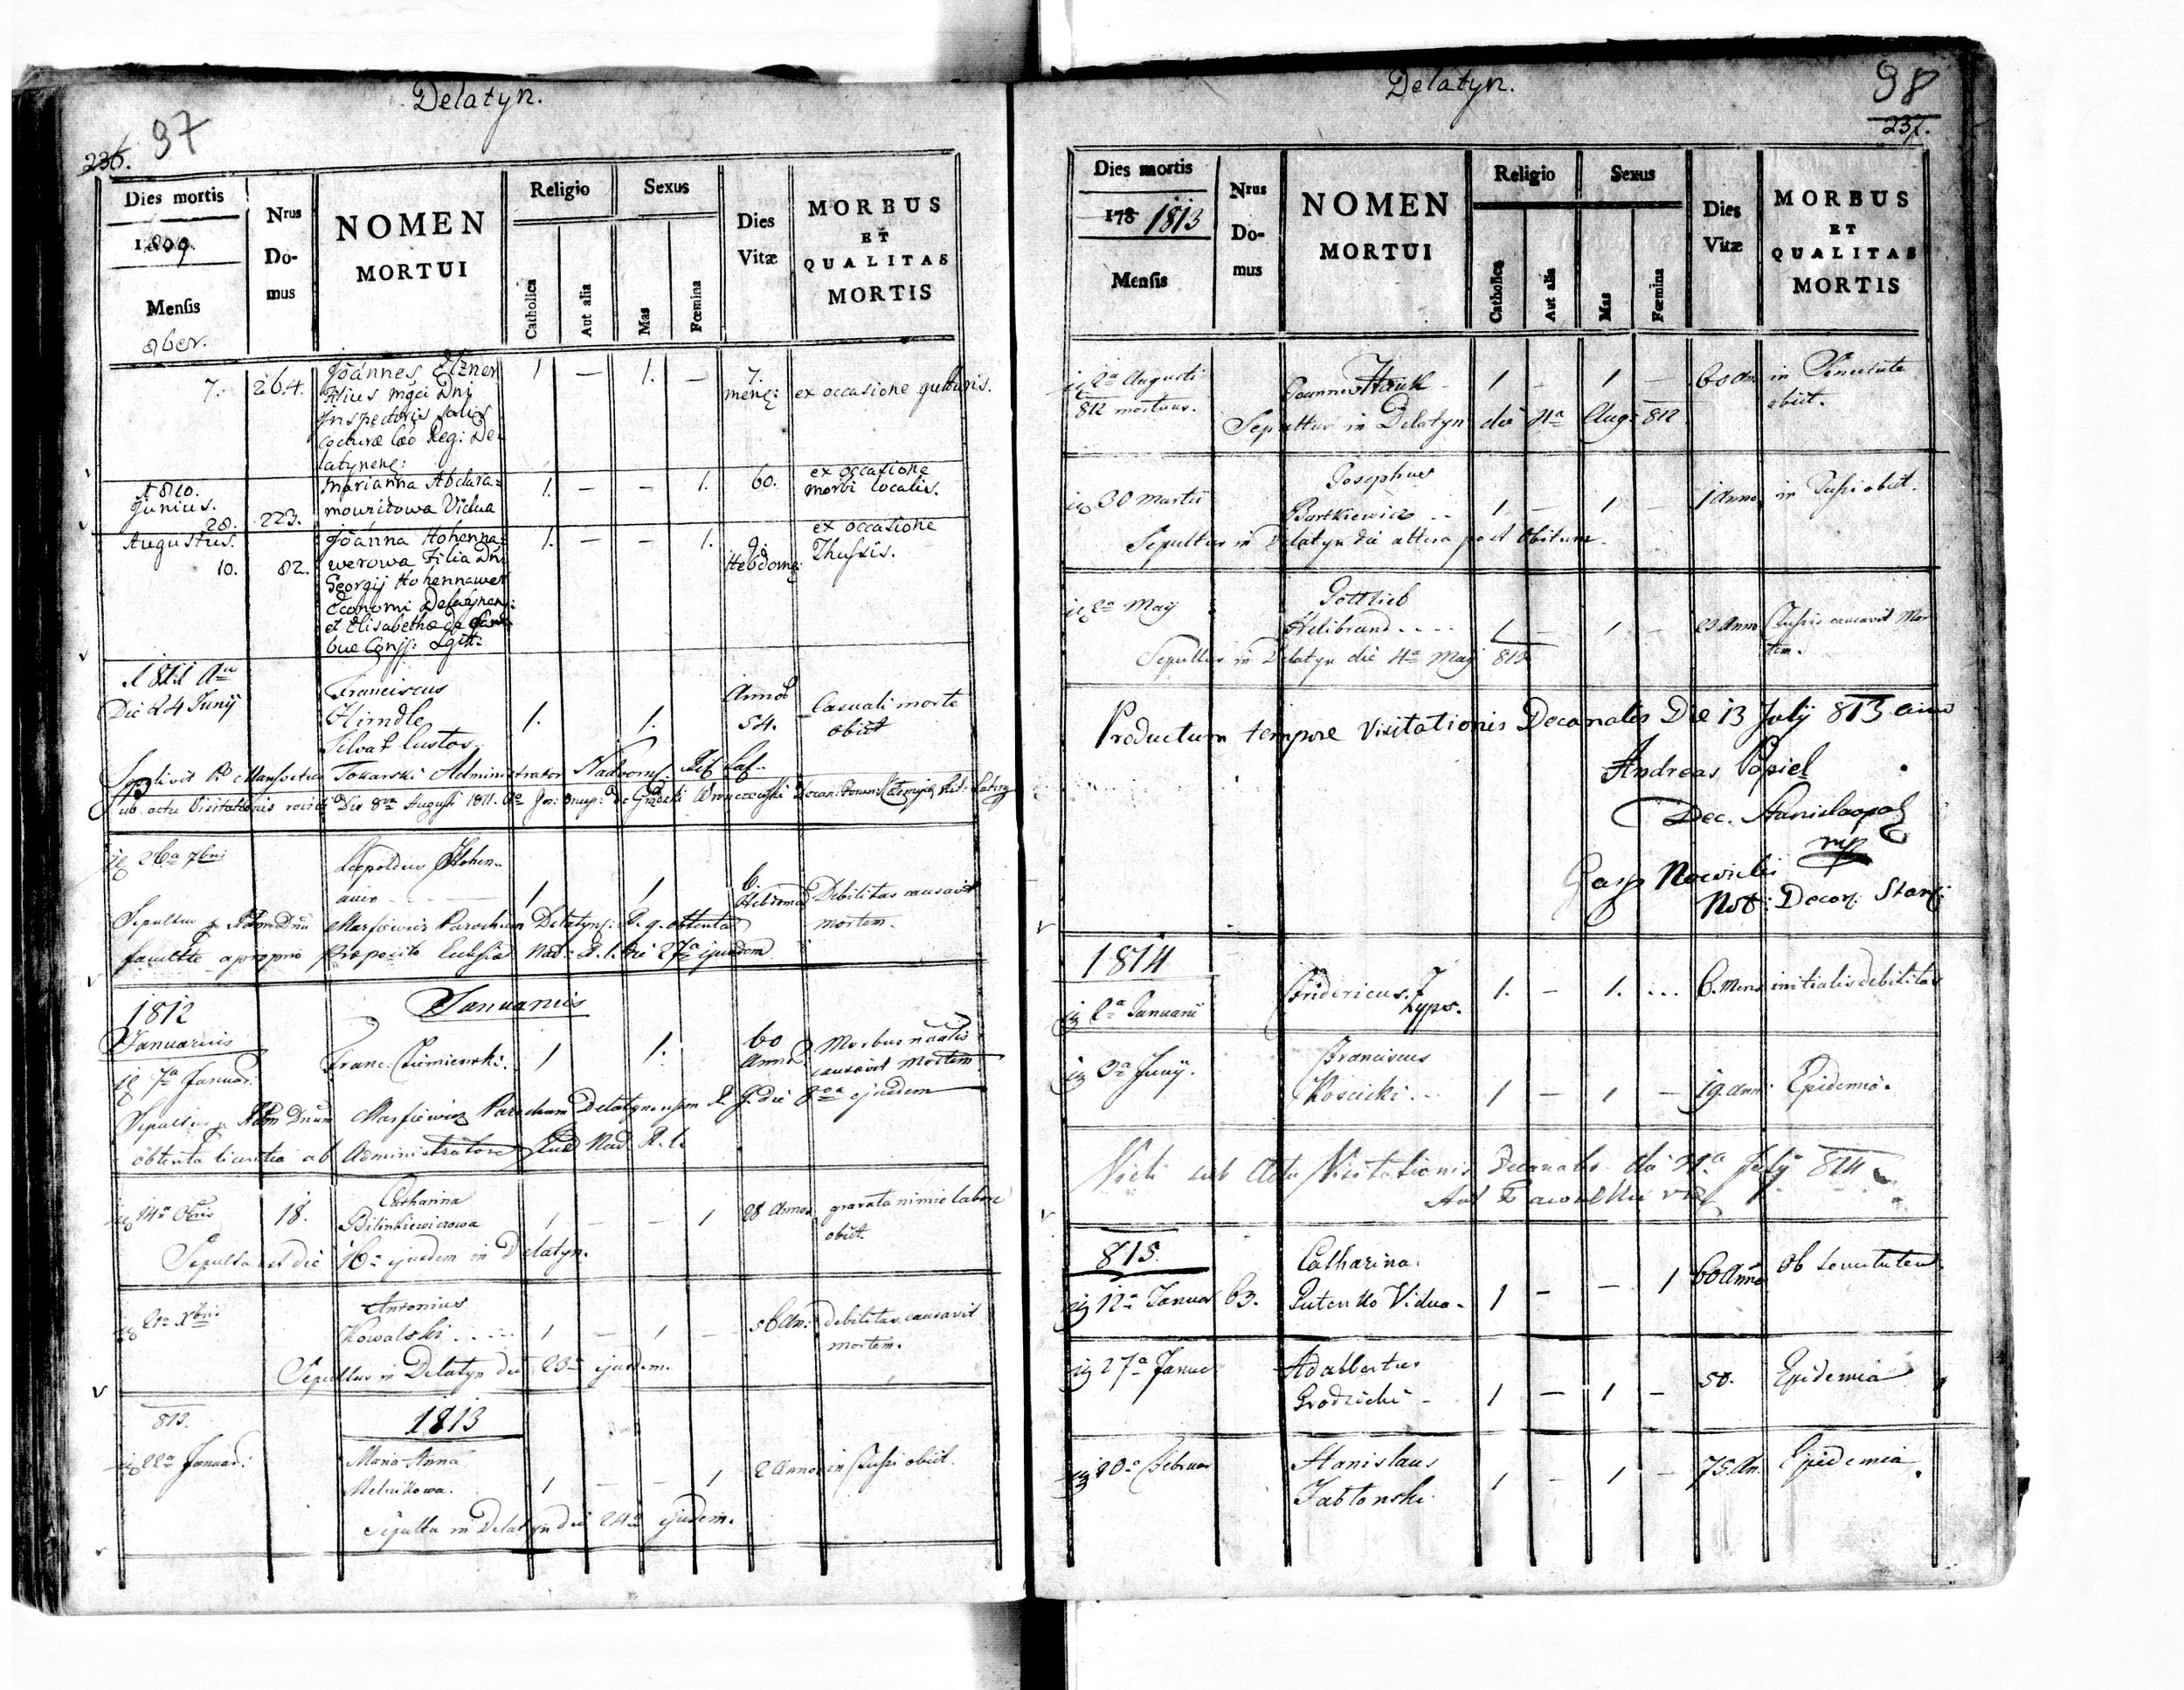 Delatyn.
97
236.
Dies mortis
1809
Mensis
8ber.
Nrus
Do-
mus
NOMEN
MORTUI
Religio
Catholica
Aut alia
Sexus
Mas
Fœmina
Dies
Vitæ
MORBUS
ET
QUALITAS
MORTIS
7. 264. Joannes Elzner 1 — 1. — 7.
Filius mgci Dni menq: ex occasione gutturis.
Inspectoris salis
cocturæ Cæo Reg: De-
latynenq:
A 810. Marianna Abdara= 1. — — 1. 60. ex occasione
Junius. mouritowa Vidua morbi localis.
28. 223.
Augustus. Joanna Hohenna= 1. — — 1. 9. ex occasione
10. 82. werowa Filia Dni Hebdomq: Thussis.
Georgij Hohennawer
Economi Delatynen:
et Elisabethæ de
bue Conjj: Lgit:
1811 Ao
Die 24 Junij Franciscus Annos Casuali morte
Himdle 1. 1. 54. obiit
Silvat Custos
Sepelivit Tokarski Administrator
Sub actu Visitationis Die 8va Augusti 1811.
26a 7bris Leopoldus Hohen-
auer 1 1 6. Hebdomad Debilitas causavit
mortem.
Sepultus p Adm Dnu Marsiewicz Parochum Delatyn: obtenta
facultate a proprio Præposito Ecclesiæ Nad: R. l. die 27a ejusdem
1812 Januarius
Januarius
7a Januar: Franc: 1 1. 60 Morbus
Annor causavit mortem
Sepultus p Adm Dnum Marsiewicz Parochum Delatynensem die ejusdem
obtenta licentia ab Administratore Nad R. l.
14a 18. Catharina
Bilinkiewiczowa 1 — — 1 28 Annor gravata nimio labore
obiit.
Sepulta est die 16a ejusdem in Delatyn.
21a Xbris Antonius
Kowalski 1 — 1 — 56 An: debilitas causavit
mortem.
Sepultus in Delatyn die 23a ejusdem.
813. 1813
22a Januar: Maria Anna
Melnikowa. 1 — — 1 2 Annor in Tussi obiit.
Sepulta in Delatyn die 24a ejusdem.
Delatyn.
98
237.
Dies mortis
178 1813
Mensis
Nrus
Do-
mus
NOMEN
MORTUI
Religio
Catholica
Aut alia
Sexus
Mas
Fœmina
Dies
Vitæ
MORBUS
ET
QUALITAS
MORTIS
2a Augusti Joannes Hauk 1 — 1 — 60 An in Senectute
812 mortuus. obiit.
Sepultus in Delatyn die 4a Aug: 812
30 Martii Josephus
Bartkiewicz 1 — 1 — 1 Anno in Tussi obiit.
Sepultus in Delatyn die altera post Obitum.
2a Maij Gottlieb
Helibrand 1 — 1 — 23 Anno Tussis causavit Mor
tem.
Sepultus in Delatyn die 4a Maij 813
Productum tempore Visitationis Decanalis Die 13 Julij 813 anno
Andreas Popiel
Dec. Stanislaopol
mp
Gasp Nowicki
Not: Decan: Stan:
1814
2a Januarii Fridericus Zyps. 1. — 1. ... 6. Mens initialis debilitas
3a Junij. Franciscus
Kościcki 1 — 1 — 19. ann: Epidemia.
Vidi sub Actu Visitationis Decanalis die Julij 814
815.
12a Januar 63. Catharina
Vidua. 1 — — 1 60 Anno ob Senectutem.
27a Januar Adalbertus
Grodzicki 1 — 1 — 50. Epidemia
20a Februar Stanislaus
Jablonski 1 — 1 — 75. An. Epidemia.